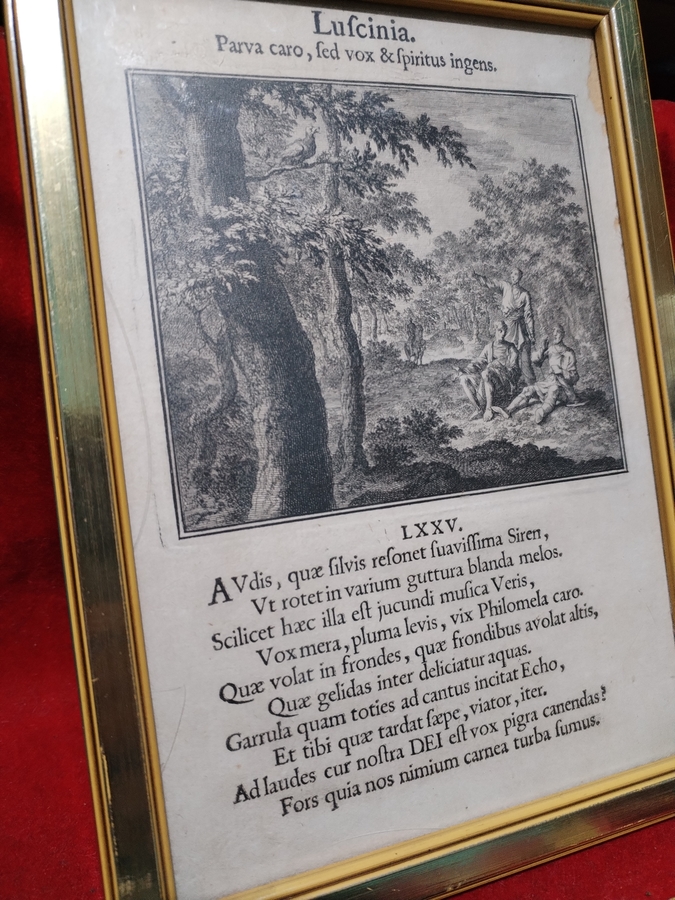 Luſcinia.
Parva caro, ſed vox & ſpiritus ingens.
LXXV.
AVdis, quæ ſilvis reſonet ſuaviſſima Siren,
Vt rotet in varium guttura blanda melos.
Scilicet hæc illa eſt jucundi muſica Veris,
Vox mera, pluma levis, vix Philomela caro.
Quæ volat in frondes, quæ frondibus avolat altis,
Quæ gelidas inter deliciatur aquas.
Garrula quam toties ad cantus incitat Echo,
Et tibi quæ tardat ſæpe, viator, iter.
Ad laudes cur noſtra DEI eſt vox pigra canendas?
Fors quia nos nimium carnea turba ſumus.